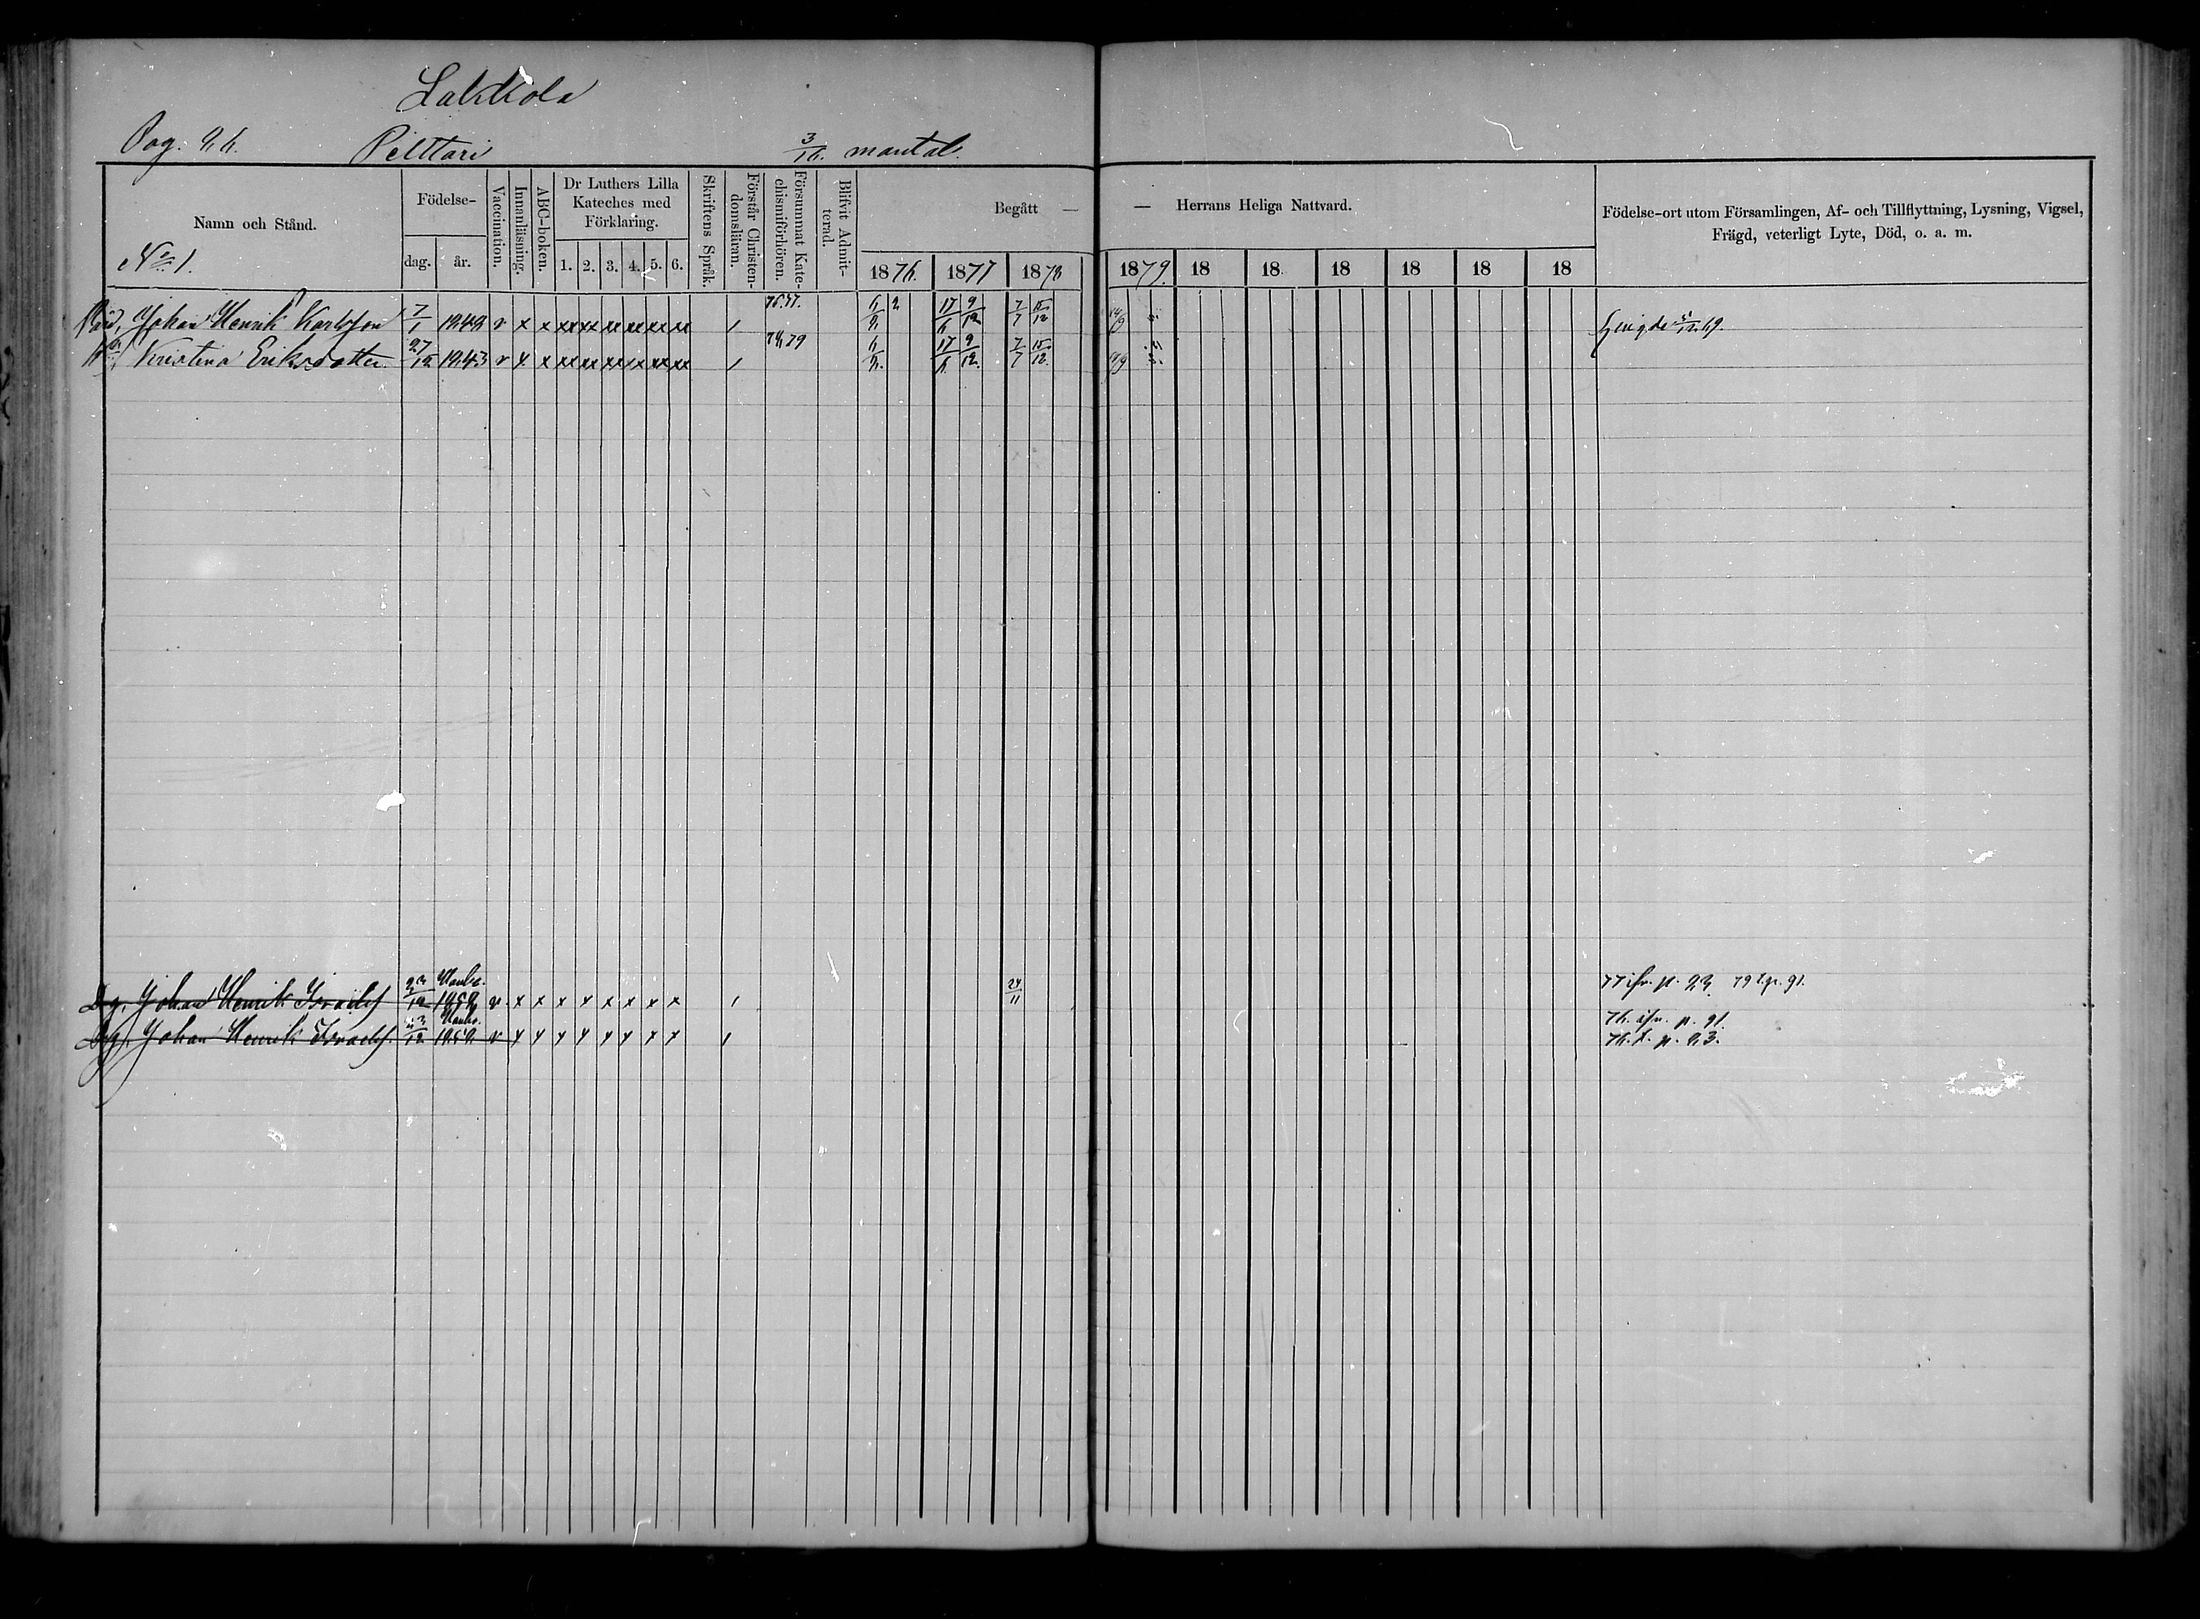 Lahdola
Pag. 86. Pelttari 3/16. mantal.
Namn och Stånd.
No 1.
Födelse-
dag. år.
Vaccination.
Innanläsning.
ABC-boken.
Dr Luthers Lilla Kateches med Förklaring.
1. 2. 3. 4. 5. 6.
Skriftens Språk.
Förstår Christendomsläran.
Försummat Katechismiförhören.
Blifvit Admitterad.
Begått — — Herrans Heliga Nattvard.
1876. 1877 1878 1879. 18 18 18 18 18 18
Födelse-ort utom Församlingen, Af- och Tillflyttning, Lysning, Vigsel,
Frägd, veterligt Lyte, Död, o. a. m.
Johan Henrik Karlsson 7/1 1848 v x x 76.77. 6/8 17/6 9/12 7/7 15/12 14/9
Kristina Eriksdotter 27/12 1843 v x x 78 79 6/8 17/6 9/12 7/7 15/12 14/9
Dg. Johan Henrik Israelss 23/12 1858 v x x x x x x x x 24/11 77 ifr. p. 83. 79 t. p. 91.
Dg. Johan Henrik Israelss. 23/12 1858 v x x x x x x x x 76. ifr. p. 91.
76. t. p. 83.